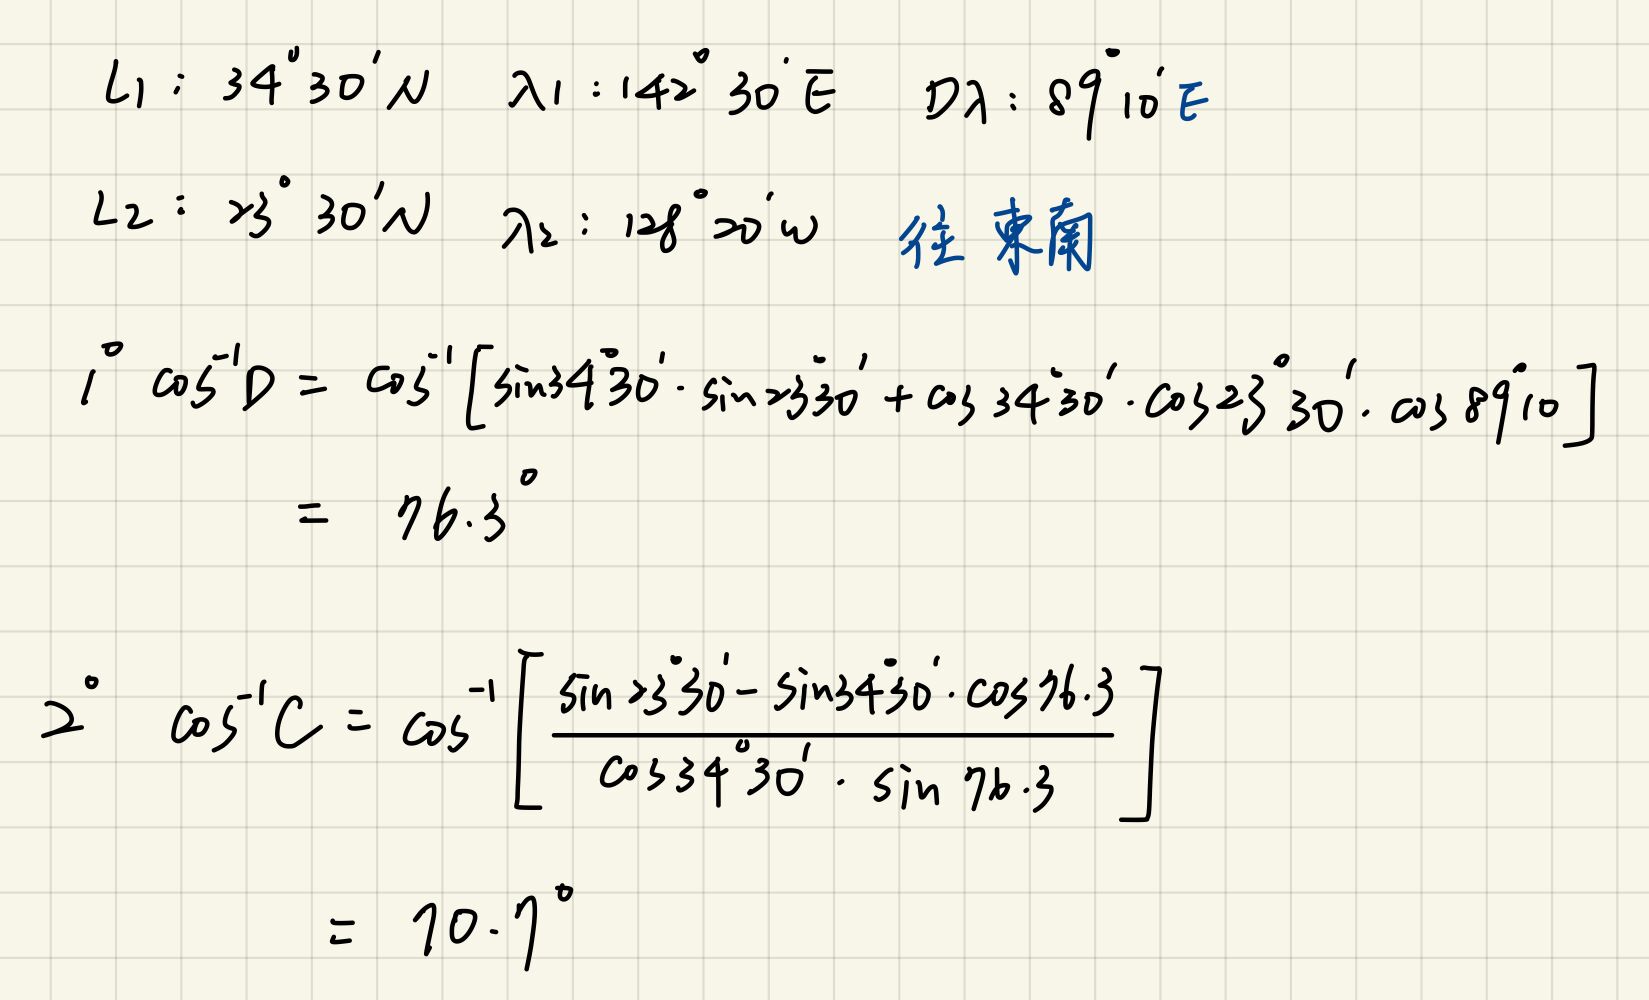 L1 : 34°30'N λ1 : 142°30'E Dλ : 89°10'E
L2 : 23°30'N λ2 : 128°20'W 往東南
1° cos⁻¹D = cos⁻¹[sin34°30'·sin23°30' + cos34°30'·cos23°30'·cos89°10]
= 76.3°
2° cos⁻¹C = cos⁻¹[(sin23°30' - sin34°30'·cos76.3)/(cos34°30'·sin76.3)]
= 70.7°